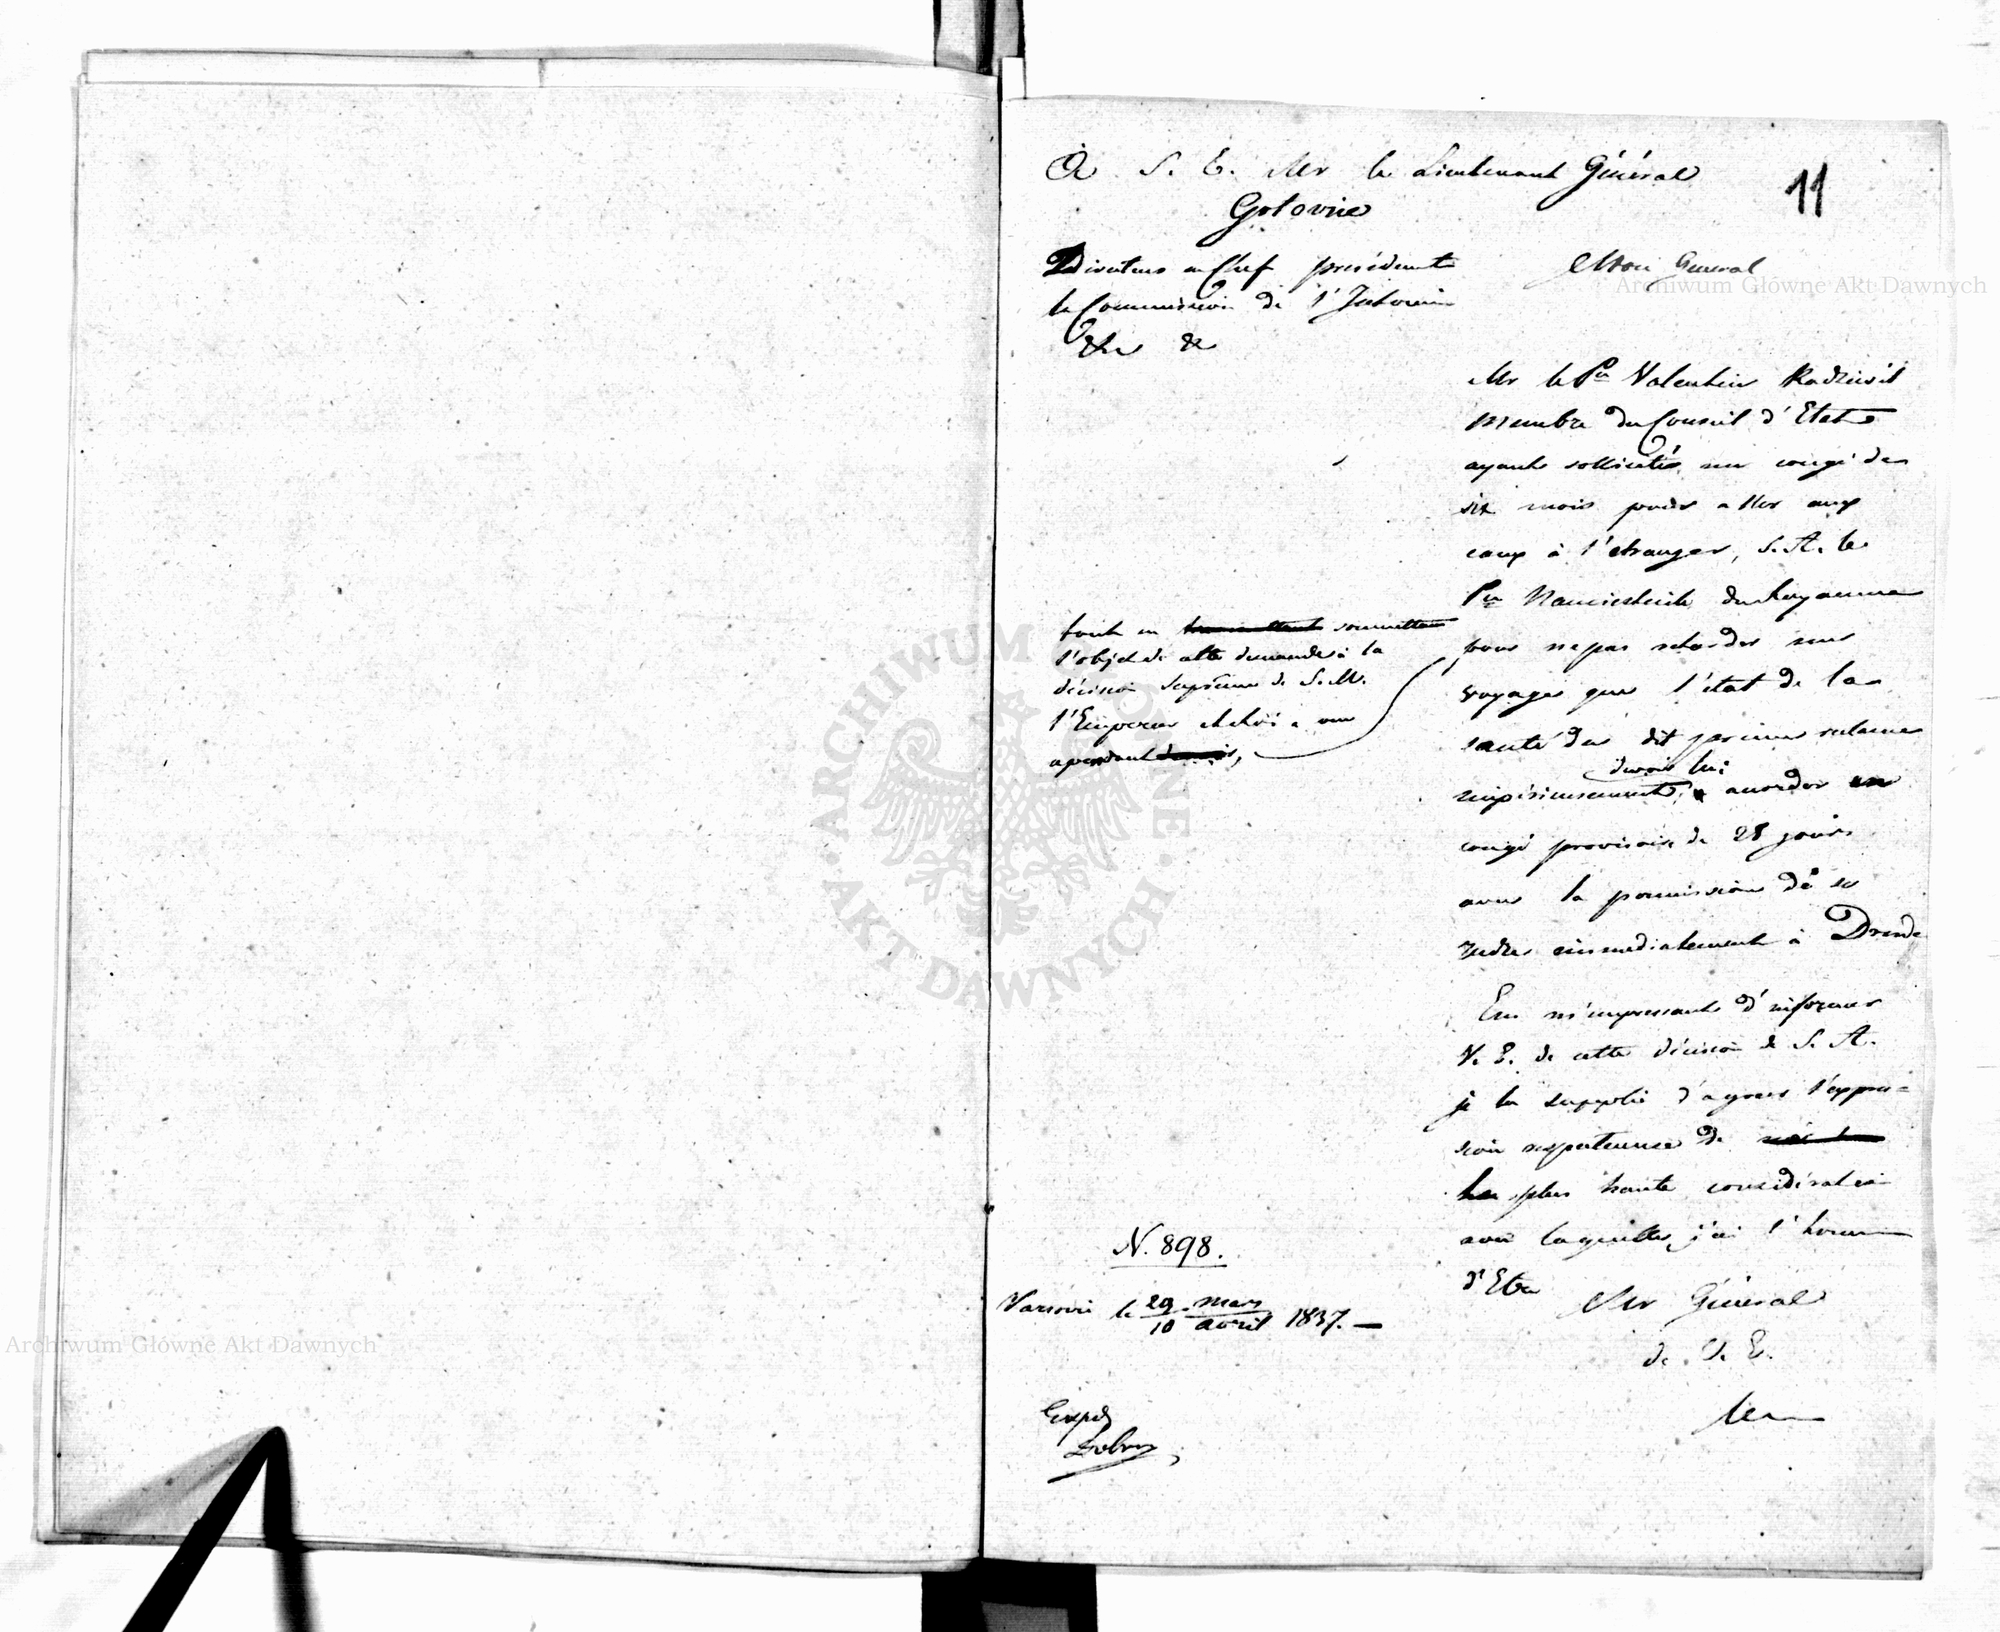 11
A S. E. Mr le Lieutenant Général
Golovine
Directeur en Chef présidant
la Commission de l'Intérieur
&c &c
Mon Général
Mr le Pce Valentin Radziwil
membre du Conseil d'Etat
ayant sollicité un congé de
six mois pour aller aux
eaux à l'etranger, S. A. le
Pce Namiestnik du Royaume
pour ne pas retarder un
voyage que l'état de la
santé du dit prince reclame
impérieusement, devoir lui accorder un
congé provisoire de 28 jours
avec la permission de se
rendre immediatement à Dresde
En m'empressant d'informer
V. E. de cette décision de S. A.
je la supplie d'agréer l'expres=
sion respectueuse de
la plus haute considération
avec laquelle j'ai l'honneur
d'Etre
Mr Général
de V. E.
tout en transmettant soumettant
l'objet de cette demande à la
décision Suprême de S. M.
l'Empereur et Roi a cru
cependant
N. 898.
Varsovie le 29 mars / 10 avril 1837.
Exped
Archiwum Główne Akt Dawnych
Archiwum Główne Akt Dawnych
ARCHIWUM GŁÓWNE · AKT DAWNYCH ·